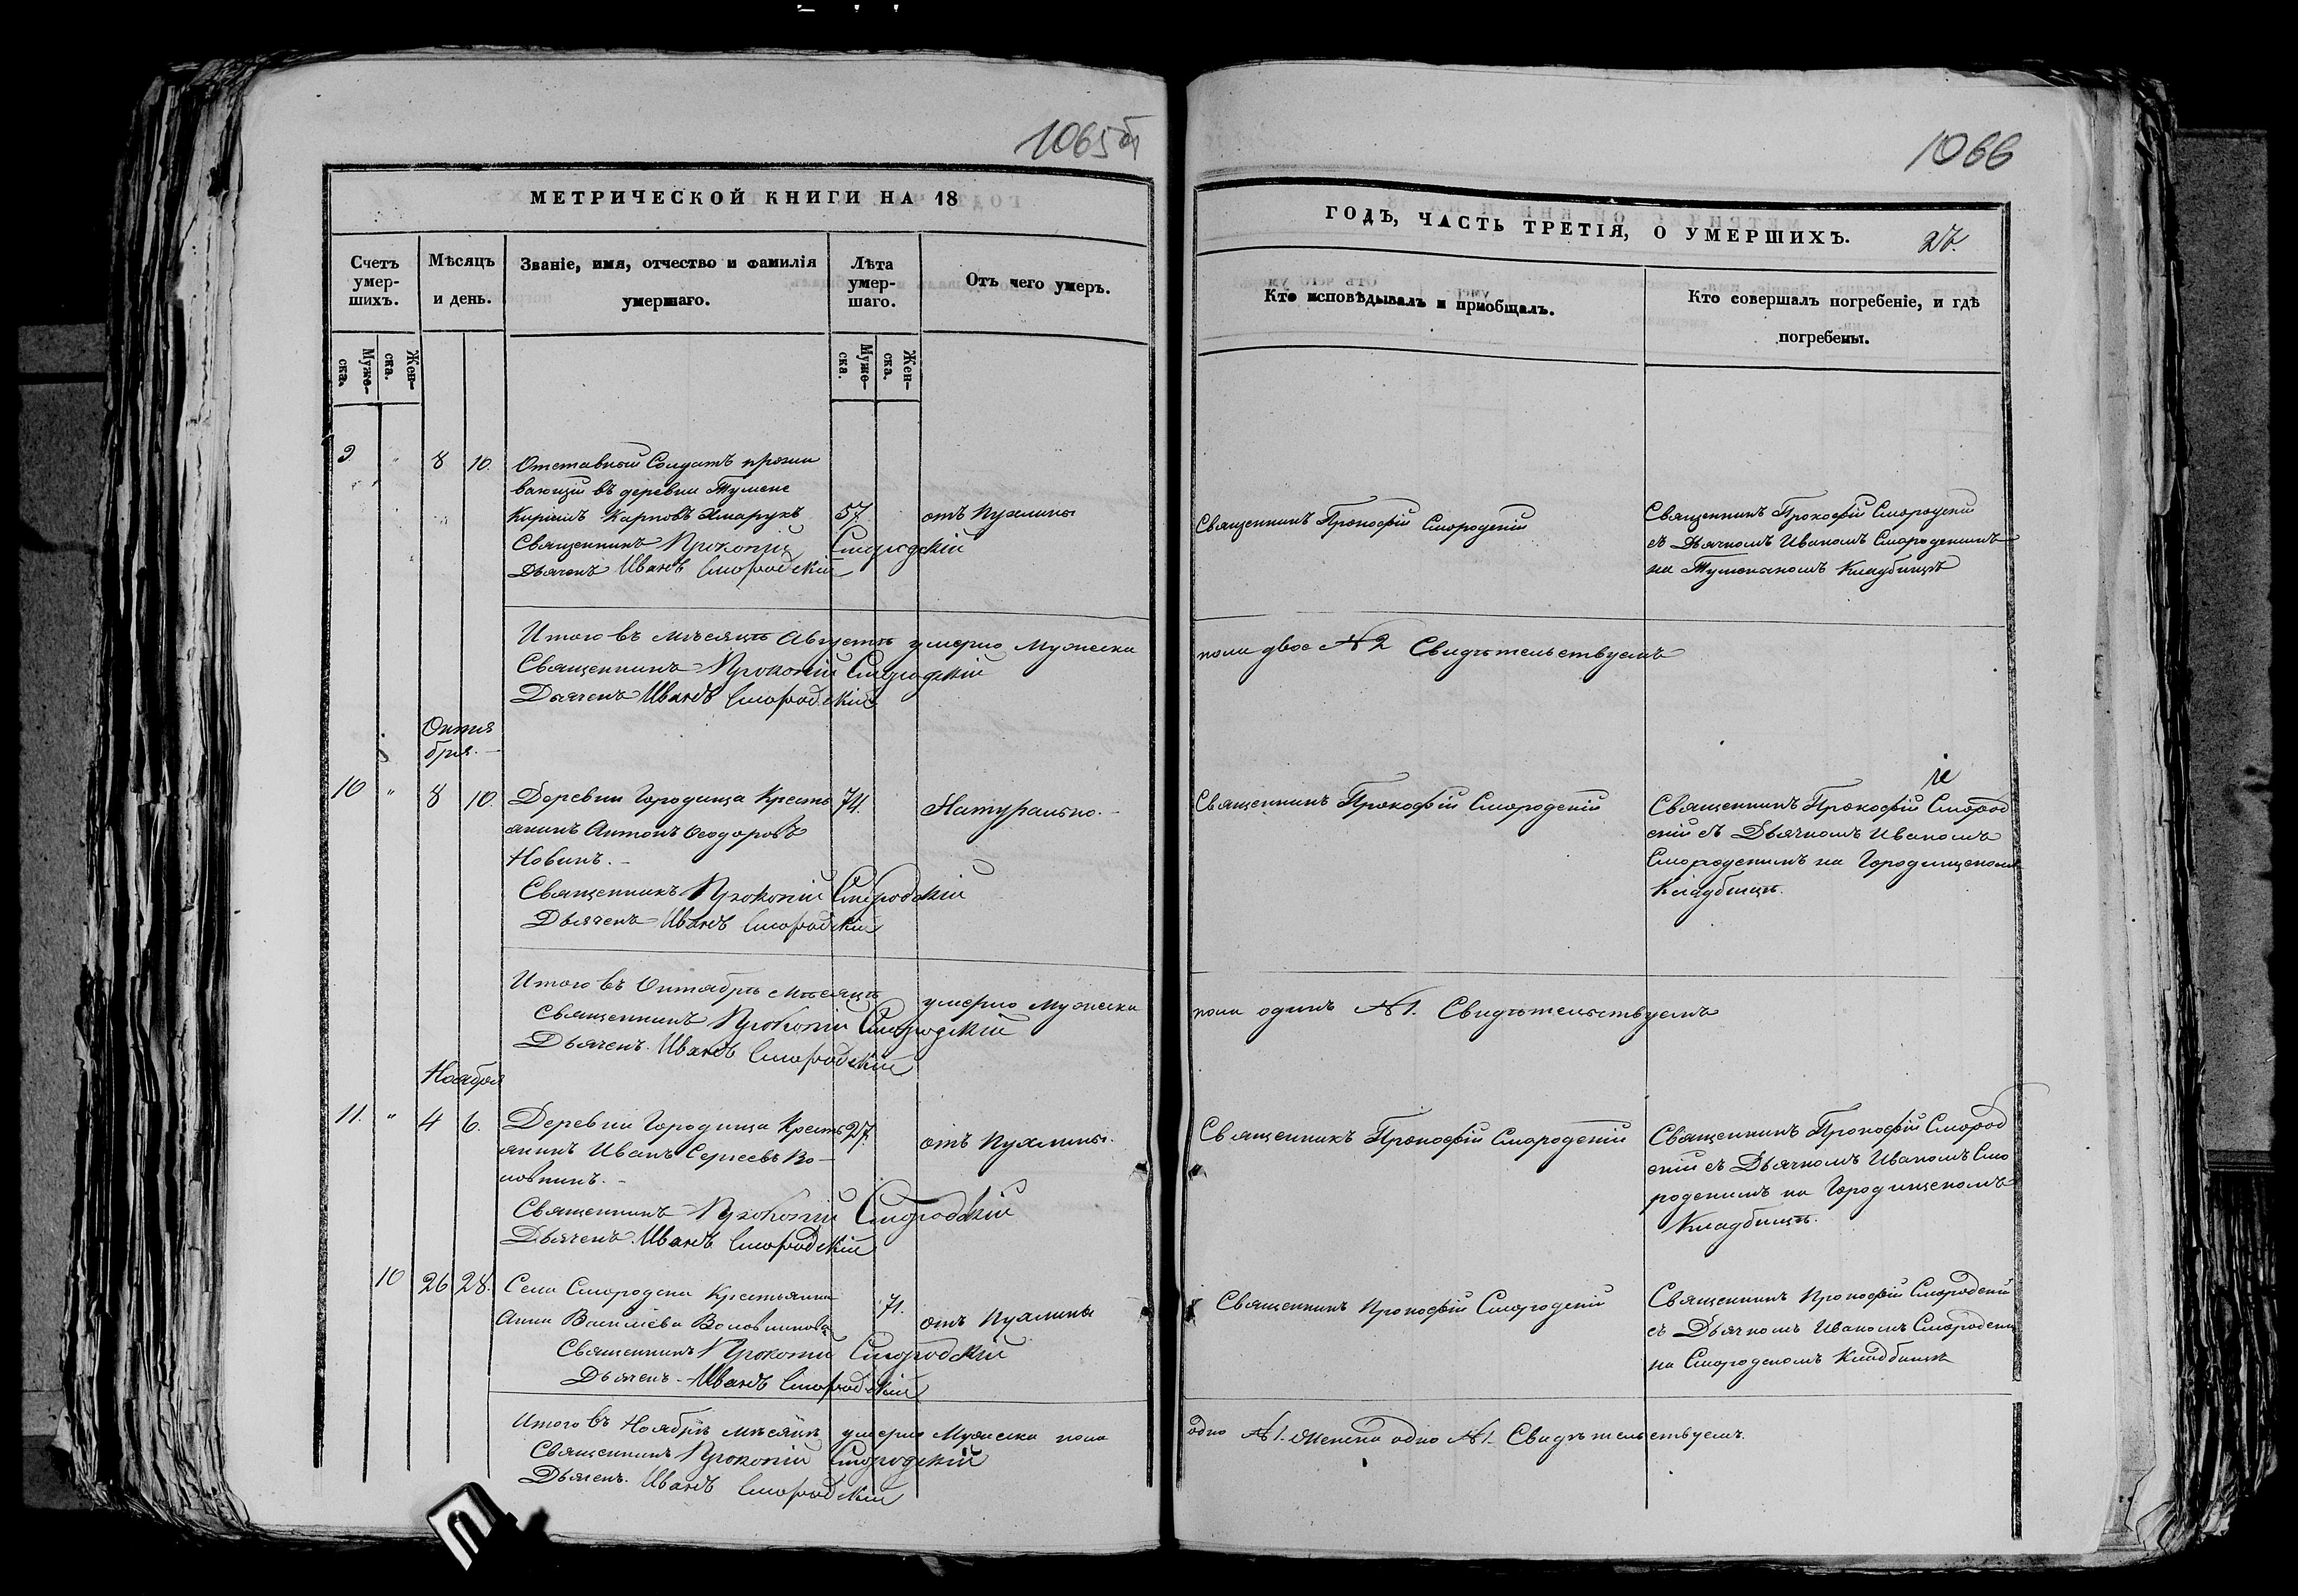 1065 об
МЕТРИЧЕСКОЙ КНИГИ НА 18
Счетъ умер-шихъ.
Мѣсяцъ и день.
Званіе, имя, отчество и фамилія умершаго.
Лѣта умер-шаго.
Отъ чего умеръ.
Муже-ска.
Жен-ска.
Муже-ска.
Жен-ска.
9 " 8 10. Отставной Солдатъ прожи
вающій въ деревни Тумене
Кирилъ Карповъ Хмарукъ 57 отъ пухлины
Священникъ Прокопій Смородскій
Дьячекъ Иванъ Смородскій
Итого въ мѣсяцѣ Августѣ умерло мужеска
Священникъ Прокопій Смородскій
Дьячекъ Иванъ Смородскій
Октя
бря.
10 " 8 10. Деревни Городища Кресть 74. Натурально.
янинъ Антонъ Ѳеодоровъ
Новикъ.
Священникъ Прокопій Смородскій
Дьячекъ Иванъ Смородскій
Итого въ Октябрѣ мѣсяцѣ умерло мужеска
Священникъ Прокопій Смородскій
Дьячекъ Иванъ Смородскій
Ноября
11. " 4 6. Деревни Городища Кресть 27. отъ пухлины.
янинъ Иванъ Сергеевъ Во-
ловникъ.
Священникъ Прокопій Смородскій
Дьячекъ Иванъ Смородскій
10 26 28. Села Смородска Крестьянка
Анна Василіева Воловникова 71. отъ пухлины
Священникъ Прокопій Смородскій
Дьячекъ Иванъ Смородскій
Итого въ Ноябрѣ мѣсяцѣ умерло мужеска пола
Священникъ Прокопій Смородскій
Дьячекъ Иванъ Смородскій
1066
ГОДЪ, ЧАСТЬ ТРЕТІЯ, О УМЕРШИХЪ.
27.
Кто исповѣдывалъ и пріобщалъ.
Кто совершалъ погребеніе, и гдѣ погребены.
Священникъ Прокофій Смородскій
Священникъ Прокофій Смородскій
съ Дьячкомъ Иваномъ Смородскимъ
на Туменскомъ Кладбищѣ
пола двое №2 Свидѣтельствуемъ
Священникъ Прокофій Смородскій
Священникъ Прокофій Смород
скій съ Дьячкомъ Иваномъ
Смородскимъ на Городищскомъ
Кладбищѣ.
пола одинъ №1. Свидѣтельствуемъ
Священникъ Прокофій Смородскій
Священникъ Прокофій Смород
скій съ Дьячкомъ Иваномъ Смо
родскимъ на Городищскомъ
Кладбищѣ.
Священникъ Прокофій Смородскій
Священникъ Прокофій Смородскій
съ Дьячкомъ Иваномъ Смородским
на Смородскомъ Кладбищѣ
одно №1. женска одно №1. Свидѣтельствуемъ.